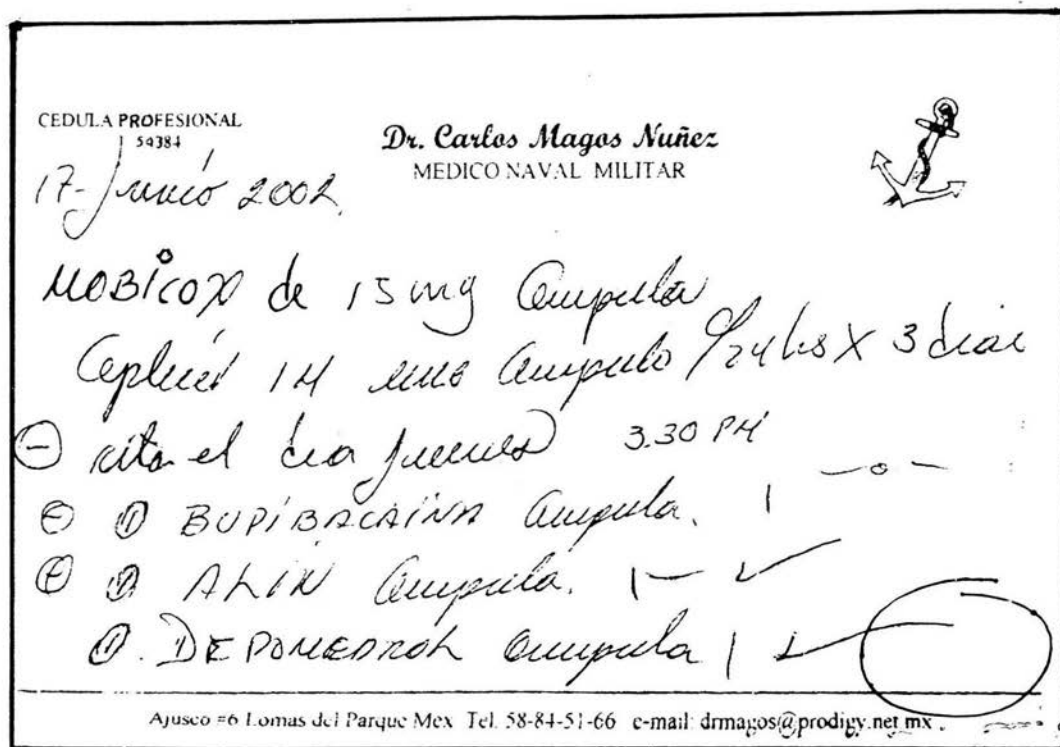 CEDULA PROFESIONAL
154384
Dr. Carlos Magos Nuñez
MEDICO NAVAL MILITAR
17-Junio 2002
MOBICOX de 15 mg Ampula
Aplicar IM una Ampula c/24 hs X 3 dias
cita el dia jueves 3.30 PM
① BUPIBACAINA Ampula. 1
① ALIN Ampula. 1
①. DEPOMEDROL Ampula 1
Ajusco #6 Lomas del Parque Mex Tel. 58-84-51-66 e-mail: drmagos@prodigy.net.mx